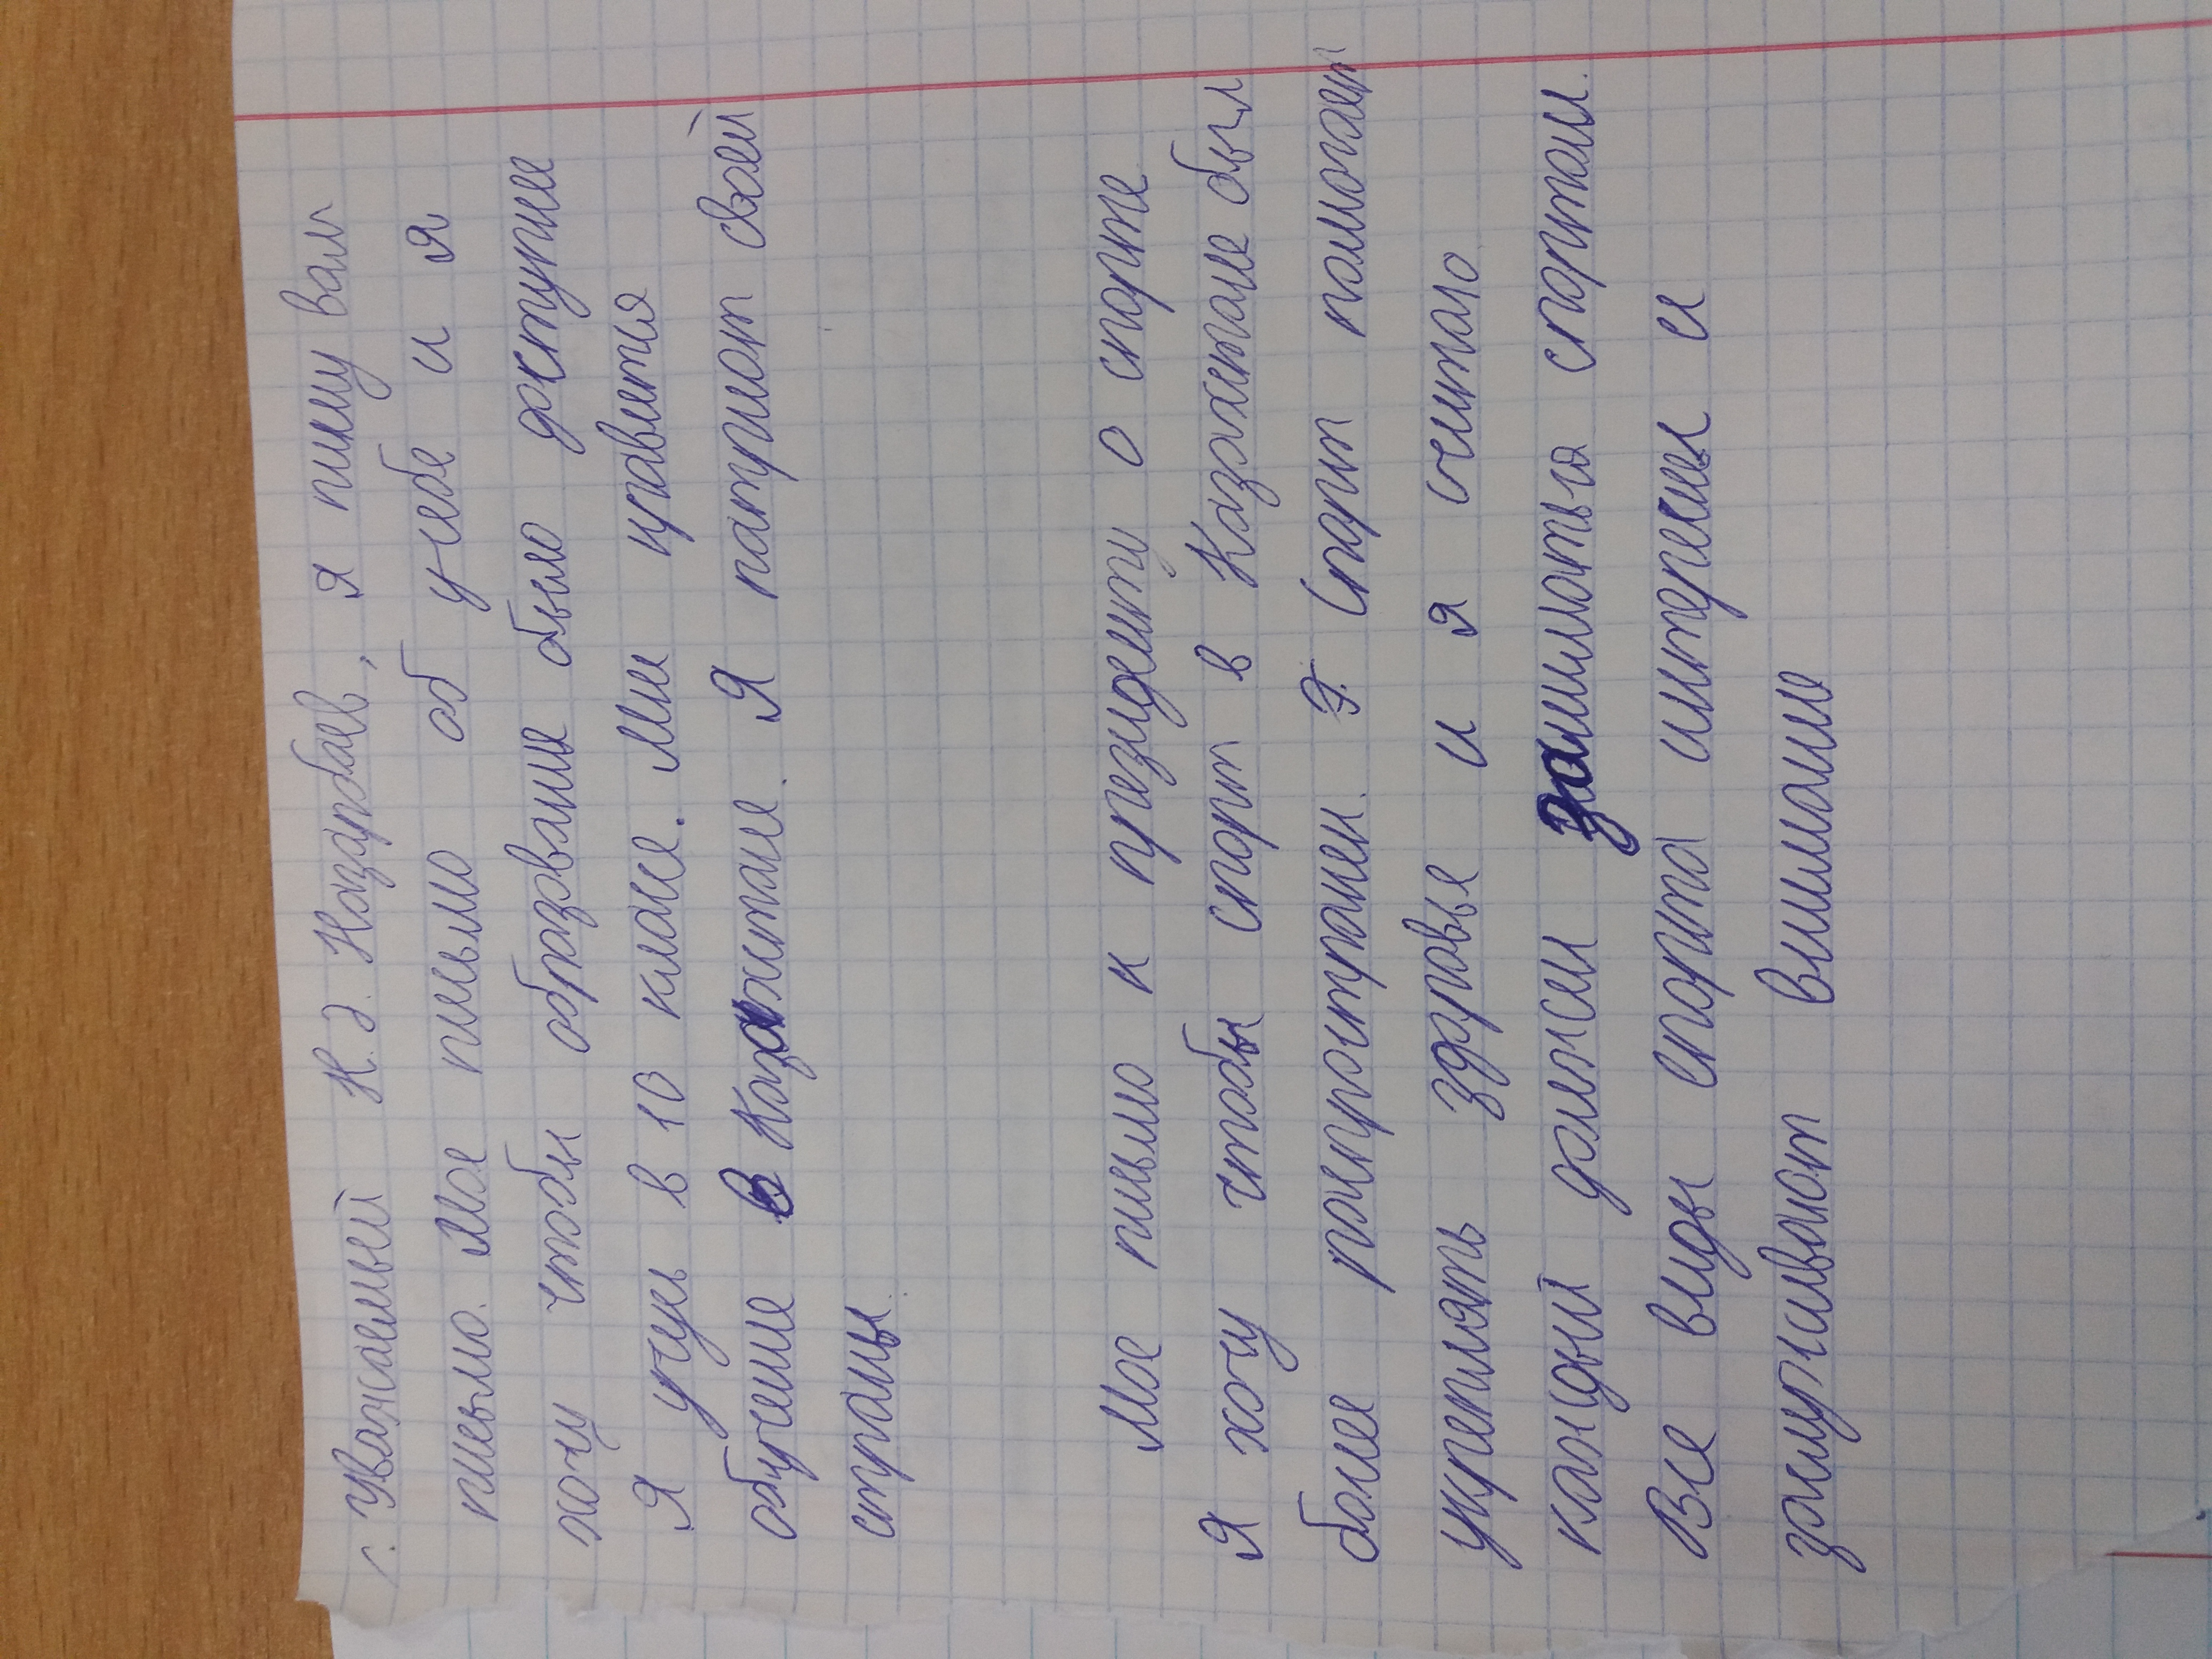 г. Уважаемый Н.Э. Назарбаев, я пишу вам
письмо. Мое письмо об учебе и я
хочу чтобы образование было доступнее
Я учусь в 10 классе. Мне нравится
обучение в Казахстане. Я патриот своей
страны.
Мое письмо к президенту о спорте
Я хочу чтобы спорт в Казахстане был
более распространен. Спорт помогает
укреплять здоровье и я считаю
каждый должен заниматься спортом.
Все виды спорта интересны и
заслуживают внимание